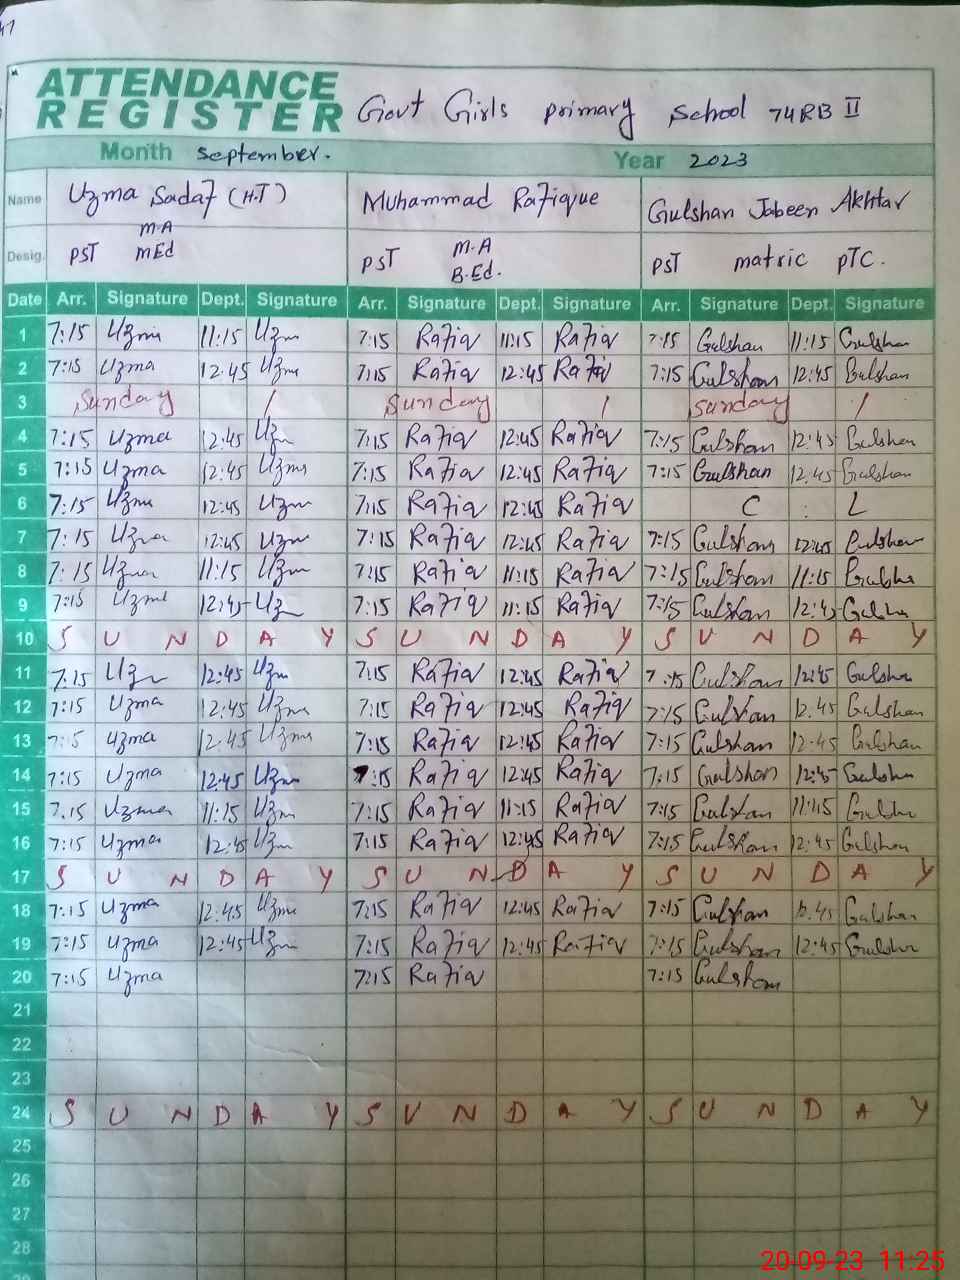 47
ATTENDANCE
REGISTER Govt Girls primary School 74RB II
Month September. Year 2023
Name Uzma Sadaf (H.T) Muhammad Rafique Gulshan Jabeen Akhtar
M.A
Desig. PST mEd PST M.A B.Ed. PST matric PTC.
Date Arr. Signature Dept. Signature Arr. Signature Dept. Signature Arr. Signature Dept. Signature
1 7:15 Uzma 11:15 Uzm 7:15 Rafiq 11:15 Rafiq 7:15 Gulshan 11:15 Gulshan
2 7:15 Uzma 12:45 Uzma 7:15 Rafiq 12:45 Rafiq 7:15 Gulshan 12:45 Gulshan
3 Sunday / Sunday / Sunday /
4 7:15 Uzma 12:45 Uzm 7:15 Rafiq 12:45 Rafiq 7:15 Gulshan 12:45 Gulshan
5 7:15 Uzma 12:45 Uzma 7:15 Rafiq 12:45 Rafiq 7:15 Gulshan 12:45 Gulshan
6 7:15 Uzma 12:45 Uzm 7:15 Rafiq 12:45 Rafiq C : L
7 7:15 Uzma 12:45 Uzm 7:15 Rafiq 12:45 Rafiq 7:15 Gulshan 12:45 Gulshan
8 7:15 Uzma 11:15 Uzm 7:15 Rafiq 11:15 Rafiq 7:15 Gulshan 11:15 Gulsha
9 7:15 Uzma 12:45 Uz 7:15 Rafiq 11:15 Rafiq 7:15 Gulshan 12:45 Gulsha
10 S U N D A Y S U N D A Y S U N D A Y
11 7:15 Uzm 12:45 Uzm 7:15 Rafiq 12:45 Rafiq 7:15 Gulshan 12:45 Gulsha
12 7:15 Uzma 12:45 Uzma 7:15 Rafiq 12:45 Rafiq 7:15 Gulshan 12.45 Gulshan
13 7:15 Uzma 12:45 Uzma 7:15 Rafiq 12:45 Rafiq 7:15 Gulshan 12:45 Gulshan
14 7:15 Uzma 12:45 Uzm 7:15 Rafiq 12:45 Rafiq 7:15 Gulshan 12:45 Gulsha
15 7.15 Uzma 11:15 Uzm 7:15 Rafiq 11:15 Rafiq 7:15 Gulshan 11:15 Gulsha
16 7:15 Uzma 12:45 Uzm 7:15 Rafiq 12:45 Rafiq 7:15 Gulshan 12:45 Gulshan
17 S U N D A Y S U N D A Y S U N D A Y
18 7:15 Uzma 12:45 Uzma 7:15 Rafiq 12:45 Rafiq 7:15 Gulshan 12.45 Gulshan
19 7:15 Uzma 12:45 Uzm 7:15 Rafiq 12:45 Rafiq 7:15 Gulshan 12:45 Gulsha
20 7:15 Uzma 7:15 Rafiq 7:15 Gulshan
21
22
23
24 S U N D A Y S U N D A Y S U N D A Y
25
26
27
28
20-09-23 11:25